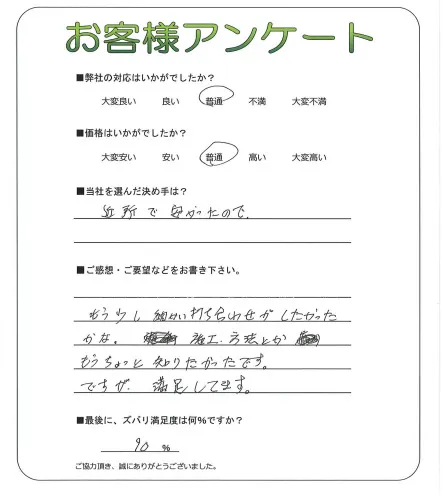 お客様アンケート
■弊社の対応はいかがでしたか?
大変良い 良い 普通 不満 大変不満
■価格はいかがでしたか?
大変安い 安い 普通 高い 大変高い
■当社を選んだ決め手は?
近所で安かったので
■ご感想・ご要望などをお書き下さい。
もう少し細かい打ち合わせがしたかった
かな。施工方法とか
もうちょっと知りたかったです。
ですが、満足してます。
■最後に、ズバリ満足度は何%ですか?
90 %
ご協力頂き、誠にありがとうございました。